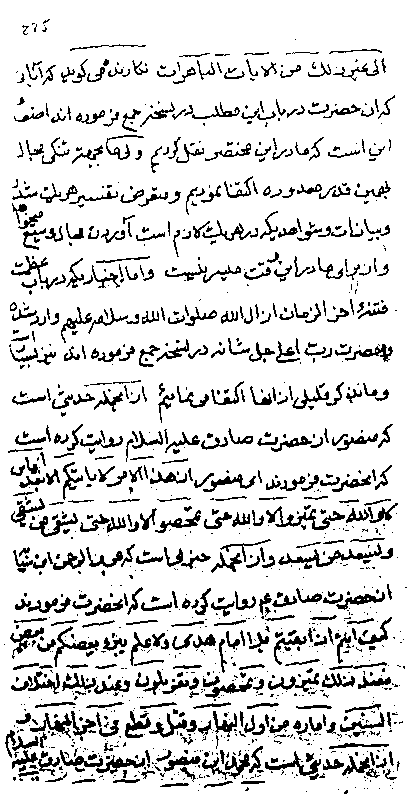 ۲۲۵
الی غیر ذلك من الایات الباهرات نگارنده می کوید که آثار
که ان حضرت در باب این مطلب در نسخه جمع فرموده اند اضعف
این است که ما در این مختصر نقل کردیم و لی بجهة تنکی مجال
بهمین قدر محدوده اکتفا نمودیم و متعرض تفسیر هریك نشد
و بیانات و شواهدیکه در هریك لازم است آوردن مجال وسیع میخواهد
و از برای ما در این وقت میسر نیست و اما اخباریکه در باب عظمت
فتنۀ اخر الزمان از ال الله صلوات الله و سلامه علیهم وارد شده
و حضرت رب اعلی جل شانه در نسخه جمع فرموده اند نیز بسیار است
و ما بذکر قلیلی از انها اکتفا می نمائیم از انجمله حدیثی است
که منصور از حضرت صادق علیه السلام روایت کرده است
که انحضرت فرمودند ای منصور ان هذا الامر لا یاتیکم الا بعد ایاس
لا و الله حتی تمیزوا لا و الله حتی تمحصوا لا و الله حتی یشقی من یشقی
و یسعد من یسعد و از انجمله خبری است که عبد الرحمن ابن سیابه
از حضرت صادق ع روایت کرده است که انحضرت فرمودند
کیف انتم اذا بقیتم بلا امام هدی و لا علم یتبرء بعضکم من بعض
فعند ذلك تمیزون و تمحصون و تغربلون و عند ذلك اختلاف
السنین و اماره من اول النهار و قتل و قطع فی اخر النهار
از انجمله حدیثی است که ابن منصور از حضرت صادق علیه السلام